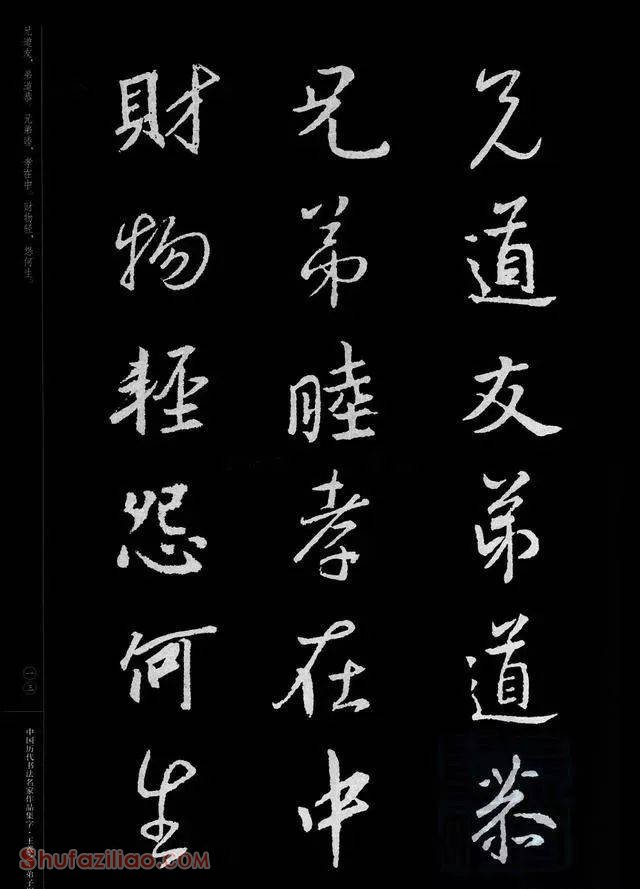 兄道友弟道恭
兄弟睦孝在中
財物輕怨何生
兄道友,弟道恭,兄弟睦,孝在中。财物轻,怨何生。
一三
中国历代书法名家作品集字·王
弟子
Shufaziliao.com